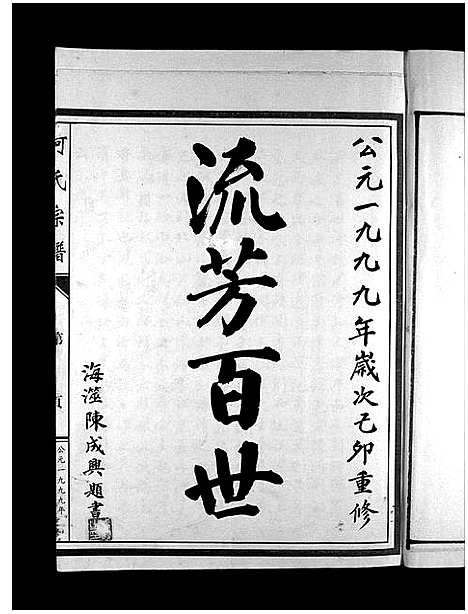 公元一九九九年歲次己卯重修
流芳百世
海澨陳成興題書
何氏宗譜
第
頁
公元一九九九年